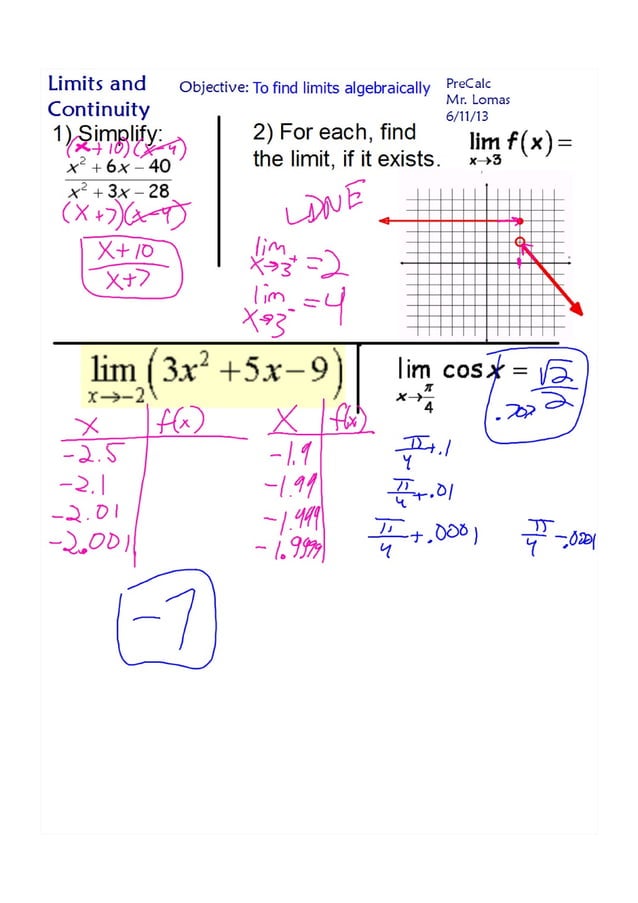 Limits and Continuity
Objective: To find limits algebraically
PreCalc
Mr. Lomas
6/11/13
1) Simplify:
(x+10)(x-4)
x² + 6x - 40
x² + 3x - 28
(x+7)(x-4)
x+10
x+7
2) For each, find
the limit, if it exists.
DNE
lim x→3⁺ = 2
lim x→3⁻ = 4
lim f(x) =
x→3
lim (3x² + 5x - 9)
x→-2
x f(x)
-2.5
-2.1
-2.01
-2.001
x f(x)
-1.9
-1.99
-1.999
-1.9999
-7
lim cos x = √2/2
x→π/4
.707
π/4 + .1
π/4 + .01
π/4 + .0001
π/4 - .0001